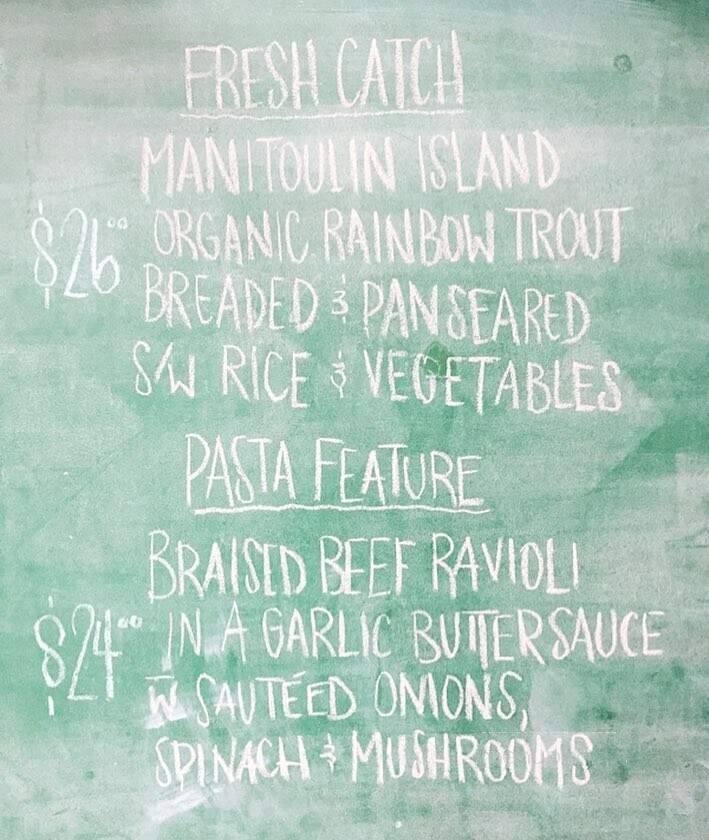 FRESH CATCH
MANITOULIN ISLAND
$26.00 ORGANIC RAINBOW TROUT
BREADED & PAN SEARED
S/W RICE & VEGETABLES
PASTA FEATURE
BRAISED BEEF RAVIOLI
$24.00 IN A GARLIC BUTTER SAUCE
W SAUTÉED ONIONS,
SPINACH & MUSHROOMS